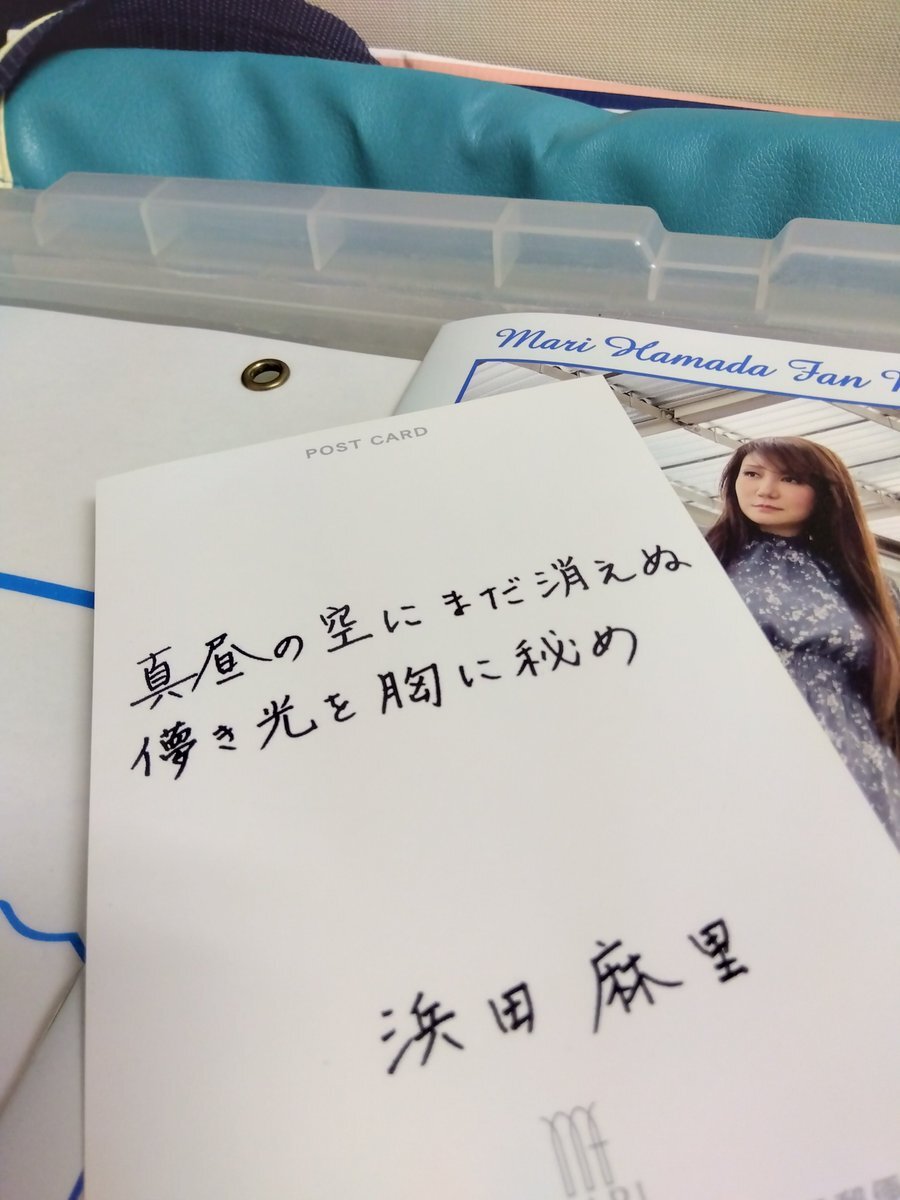 Mari Hamada Fan
POST CARD
真昼の空にまだ消えぬ
儚き光を胸に秘め
浜田麻里